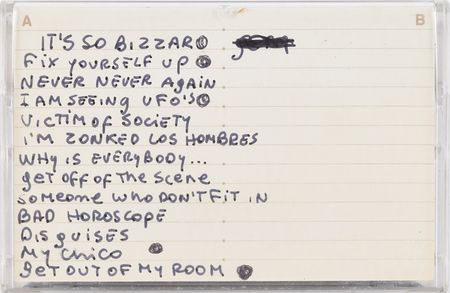 A B
IT'S SO BIZZAR
FIX YOURSELF UP
NEVER NEVER AGAIN
I AM SEEING UFO'S
VICTIM OF SOCIETY
I'M ZONKED LOS HOMBRES
WHY IS EVERYBODY...
GET OFF OF THE SCENE
SOMEONE WHO DON'T FIT IN
BAD HOROSCOPE
DISGUISES
MY CHICO
GET OUT OF MY ROOM